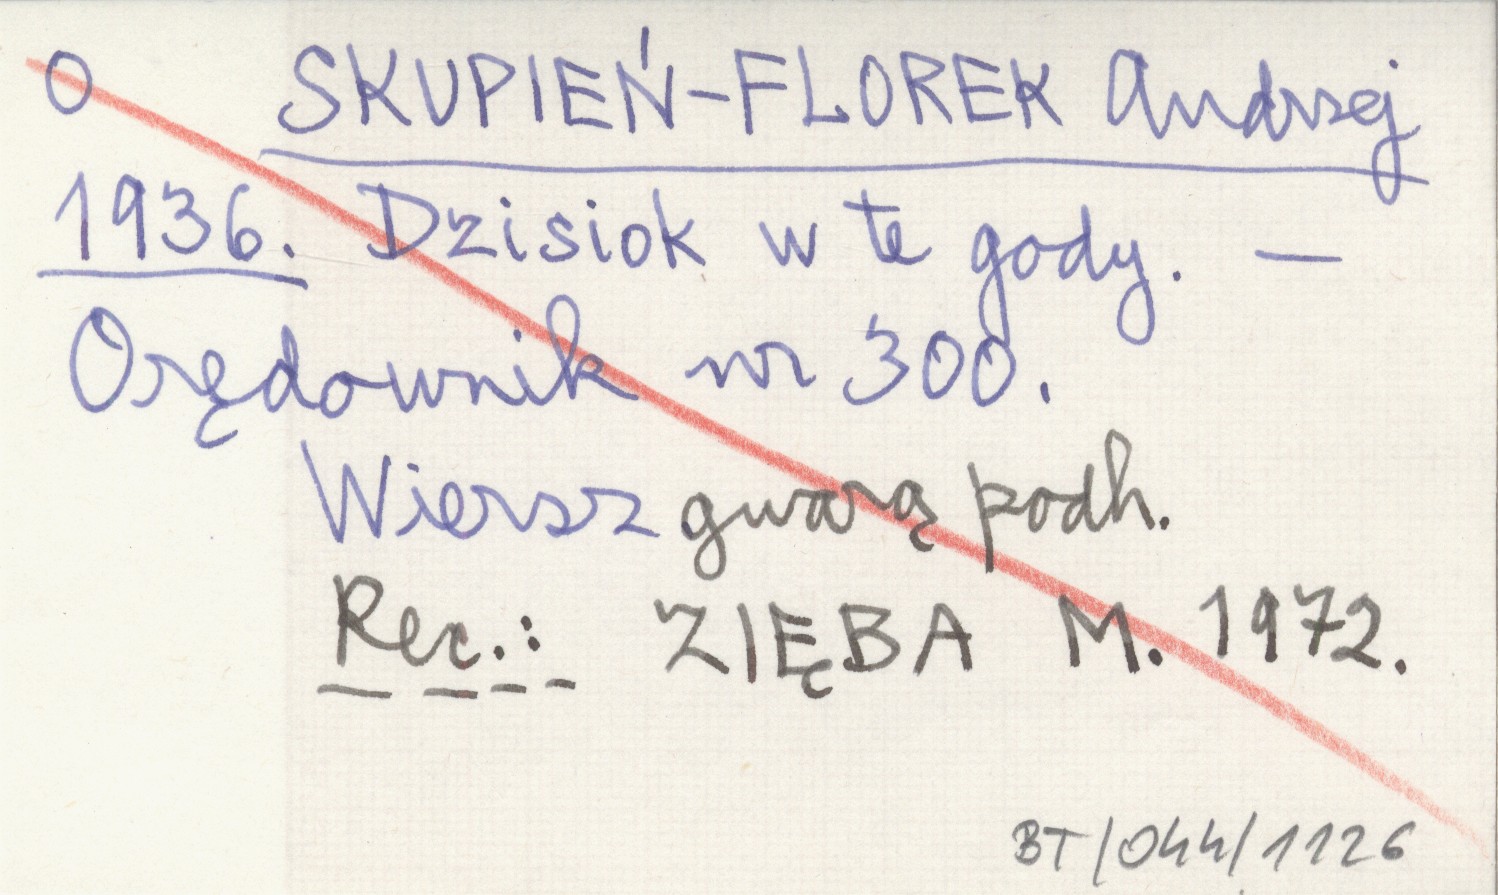 O SKUPIEŃ-FLOREK Andrzej
1936. Dzisiok w te gody. —
Orędownik nr 300.
Wiersz gwarą podh.
Rec.: ZIĘBA M. 1972.
BT/044/1126